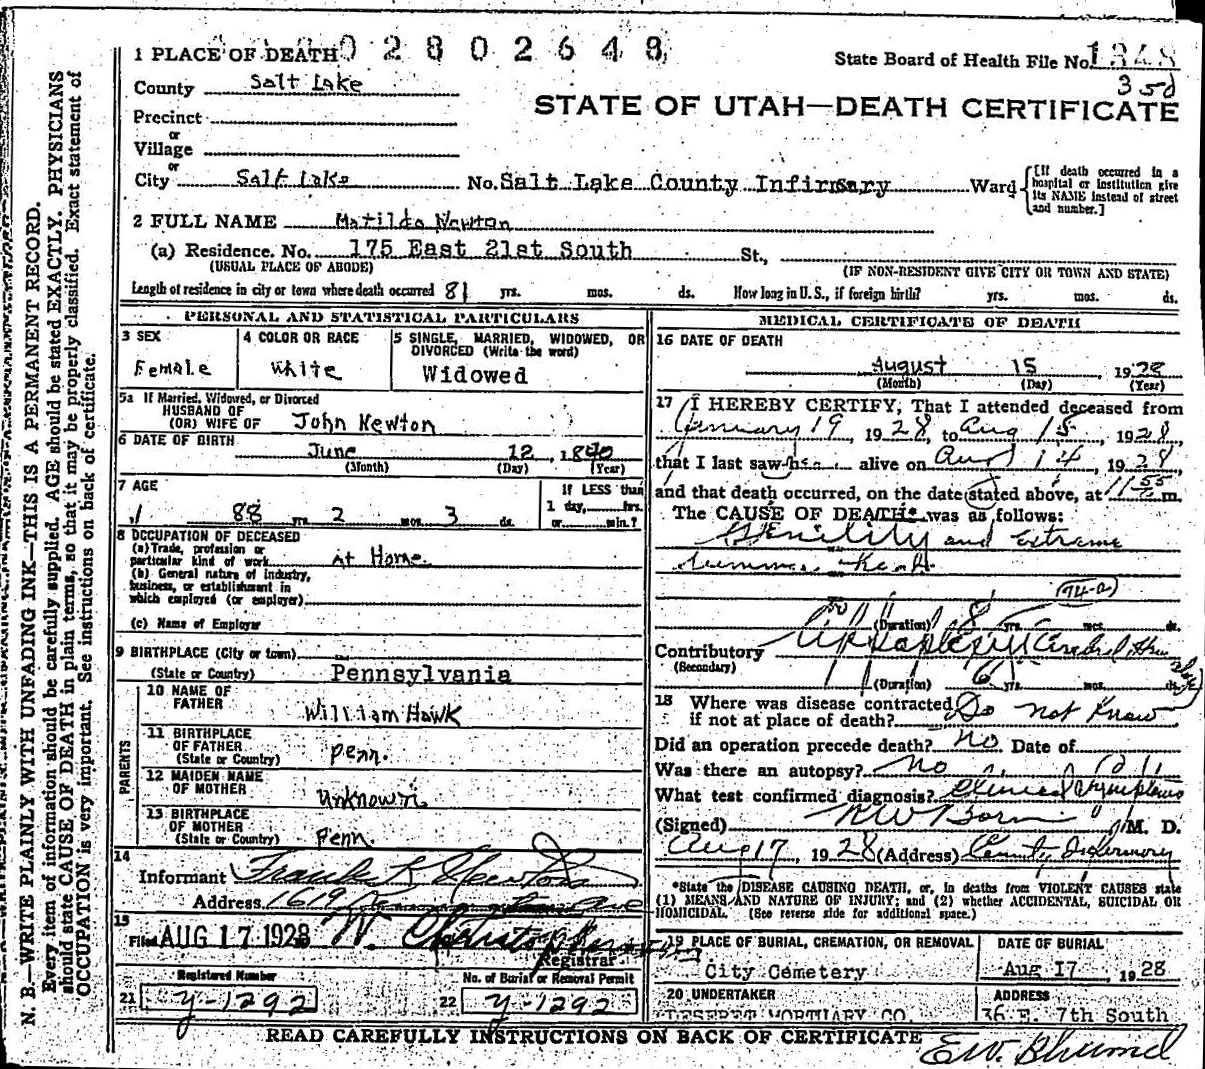 N. B.—WRITE PLAINLY WITH UNFADING INK—THIS IS A PERMANENT RECORD.
Every item of information should be carefully supplied. AGE should be stated EXACTLY. PHYSICIANS
should state CAUSE OF DEATH in plain terms, so that it may be properly classified. Exact statement of
OCCUPATION is very important. See instructions on back of certificate.
1 PLACE OF DEATH 02802648
State Board of Health File No. 1348
350
County Salt Lake
STATE OF UTAH—DEATH CERTIFICATE
Precinct
or
Village
or
City Salt Lake No. Salt Lake County Infirmary Ward
[If death occurred in a
hospital or institution give
its NAME instead of street
and number.]
2 FULL NAME Matilda Newton
(a) Residence. No. 175 East 21st South St.,
(USUAL PLACE OF ABODE) (IF NON-RESIDENT GIVE CITY OR TOWN AND STATE)
Length of residence in city or town where death occurred 81 yrs. mos. ds. How long in U. S., if foreign birth? yrs. mos. ds.
PERSONAL AND STATISTICAL PARTICULARS
3 SEX
Female
4 COLOR OR RACE
White
5 SINGLE, MARRIED, WIDOWED, OR
DIVORCED (Write the word)
Widowed
5a If Married, Widowed, or Divorced
HUSBAND OF
(OR) WIFE OF John Newton
6 DATE OF BIRTH
June 12, 1840
(Month) (Day) (Year)
7 AGE
88 yrs. 2 mos. 3 ds.
If LESS than
1 day, hrs.
or min.?
8 OCCUPATION OF DECEASED
(a) Trade, profession or
particular kind of work At Home.
(b) General nature of industry,
business, or establishment in
which employed (or employer)
(c) Name of Employer
9 BIRTHPLACE (City or town)
(State or Country) Pennsylvania
PARENTS
10 NAME OF
FATHER William Hawk
11 BIRTHPLACE
OF FATHER
(State or Country) Penn.
12 MAIDEN NAME
OF MOTHER Unknown
13 BIRTHPLACE
OF MOTHER
(State or Country) Penn.
14
Informant Frank R Newton
Address 1619 Ave
15
Filed AUG 17 1928
Registrar
Registered Number
21 Y-1292
No. of Burial or Removal Permit
22 Y-1292
MEDICAL CERTIFICATE OF DEATH
16 DATE OF DEATH
August 15 1928
(Month) (Day) (Year)
17 I HEREBY CERTIFY, That I attended deceased from
January 19, 1928, to Aug 15, 1928,
that I last saw her alive on Aug 14, 1928,
and that death occurred, on the date stated above, at 11 55 m.
The CAUSE OF DEATH* was as follows:
Senility and extreme
summer heat
(Duration) 8 yrs. mos. ds.
Contributory
(Secondary)
(Duration) 6 yrs. mos. ds.
18 Where was disease contracted
if not at place of death? Do not know
Did an operation precede death? No Date of
Was there an autopsy? No
What test confirmed diagnosis? Clinical Symptoms
(Signed) M. D.
Aug 17, 1928 (Address) County Infirmary
*State the DISEASE CAUSING DEATH, or, in deaths from VIOLENT CAUSES state
(1) MEANS AND NATURE OF INJURY; and (2) whether ACCIDENTAL, SUICIDAL OR
HOMICIDAL. (See reverse side for additional space.)
19 PLACE OF BURIAL, CREMATION, OR REMOVAL
City Cemetery
DATE OF BURIAL
Aug 17, 1928
20 UNDERTAKER
DESERET MORTUARY CO.
ADDRESS
36 E. 7th South
READ CAREFULLY INSTRUCTIONS ON BACK OF CERTIFICATE